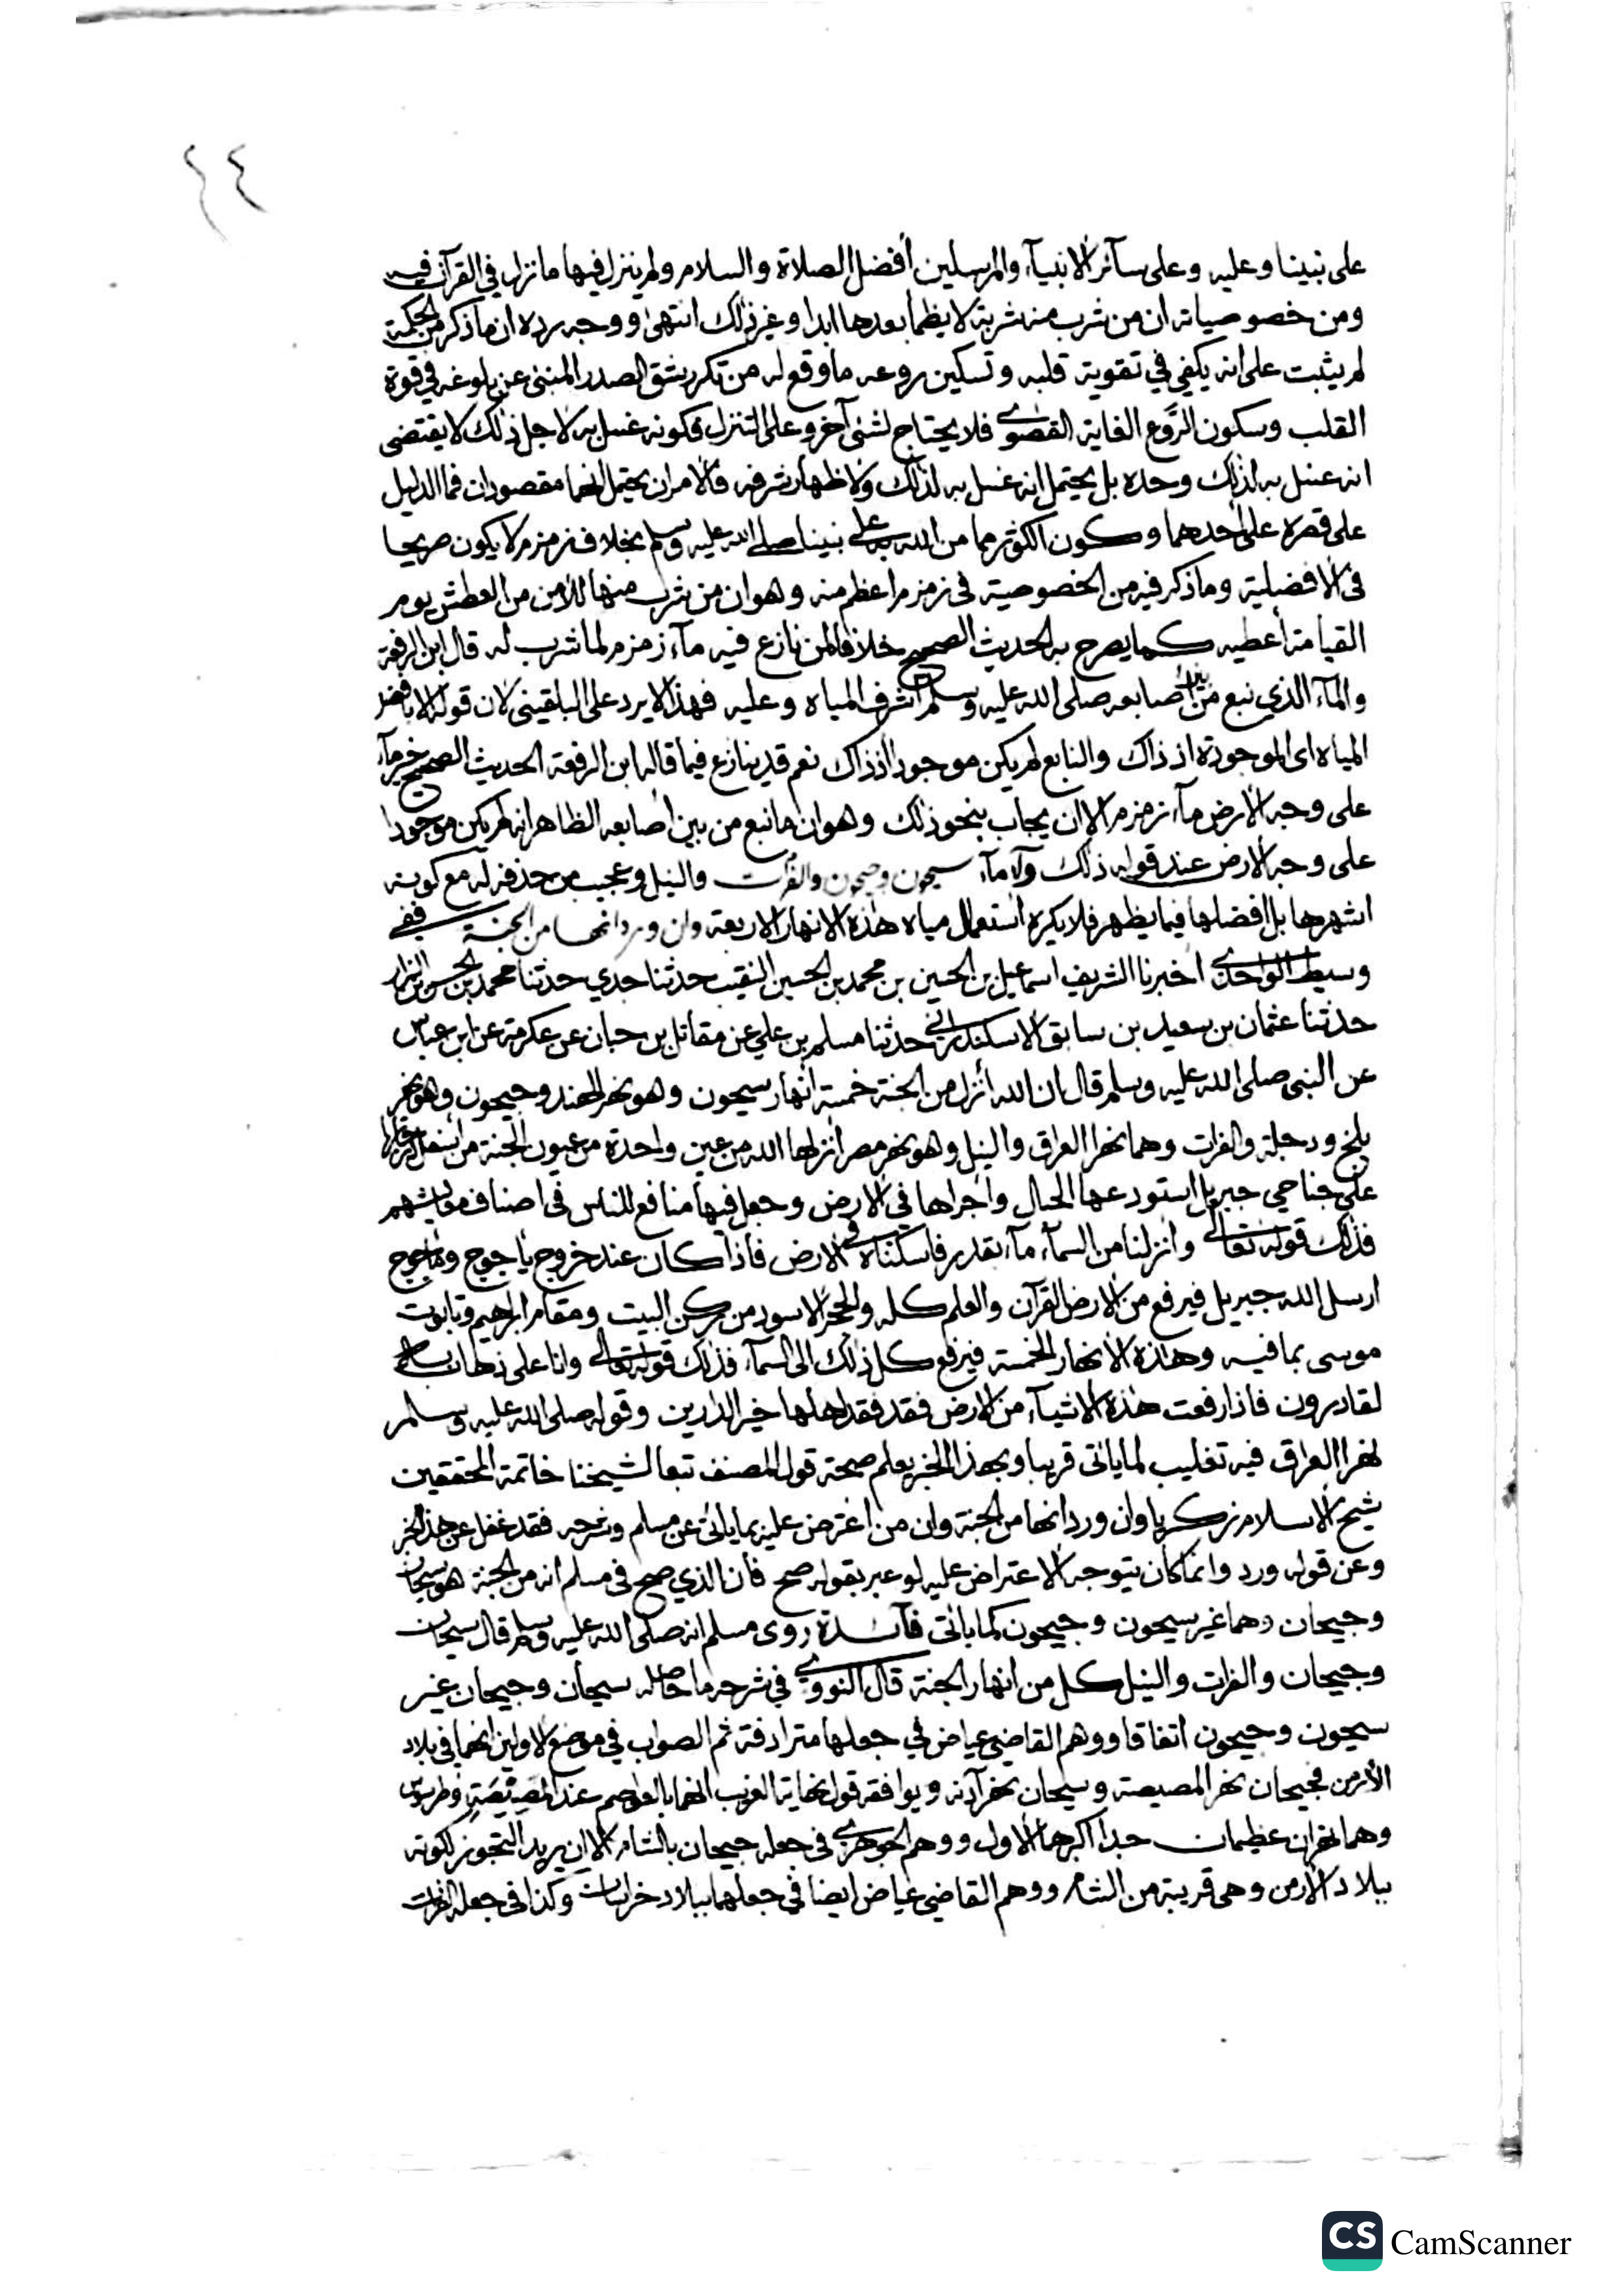 ٢٤
على نبينا وعليه وعلى سآئر الانبيآء والمرسلين أفضل الصلاة والسلام ولم ينزل فيها ما نزل في القرآن فيه
ومن خصوصياته ان من شرب منه شربة لا يظمأ بعدها ابدا وغير ذلك انتهى ووجه رده ان ما ذكر من الحكمة
لم يثبت على انه يكفي في تقوية قلبه وتسكين روعه ما وقع له من تكرر شق الصدر المنبئ عن بلوغه في قوة
القلب وسكون الرَّوع الغاية القصوى فلا يحتاج لشئ آخر وعلى التنزل فكونه غسل به لاجل ذلك لا يقتضى
انه غسل به لذلك وحده بل يحتمل انه غسل به لذلك ولاظهار شرفه فالامران يحتمل انهما مقصودان فما الدليل
على قصره على أحدهما وكون الكوثر مما من الله به على نبينا صلى الله عليه وسلم بخلاف زمزم لا يكون صريحا
فى الافضلية وما ذكر فيه من الخصوصية فى زمزم اعظم منه وهو ان من شرب منها للأمن من العطش يوم
القيامة أعطيه كما يصرح به الحديث الصحيح خلافا لمن نازع فيه مآء زمزم لما شرب له قال ابن الرفعة
والمآء الذي نبع من بين أصابعه صلى الله عليه وسلم أشرف المياه وعليه فهذا لا يرد على البلقينى لان قوله الا بافضل
المياه اى الموجودة اذ ذاك والنابع لم يكن موجودا اذ ذاك نعم قد ينازع فيما قاله ابن الرفعة الحديث الصحيح خير مآء
على وجه الارض مآء زمزم الا ان يجاب بنحو ذلك وهو ان ما نبع من بين أصابعه الظاهر انه لم يكن موجودا
على وجه الارض عند قوله ذلك ولا مآء سيحون وجيحون والفرات والنيل وعجيب من حذفه له مع كونه
اشهرها بل افضلها فيما يظهر فلا يكره استعمال مياه هذه الانهار الاربعة وان ورد انها من الجنة ففي
وسيط الواحدى اخبرنا الشريف اسماعيل بن الحسين بن محمد بن الحسين النقيب حدثنا جدي حدثنا محمد بن الحسن البزار
حدثنا عثمان بن سعيد بن سابق الاسكندرانى حدثنا مسلم بن علي عن مقاتل بن حبان عن عكرمة عن ابن عباس
عن النبى صلى الله عليه وسلم قال ان الله أنزل من الجنة خمسة أنهار سيحون وهو نهر الهند وجيحون وهو نهر
بلخ ودجلة والفرات وهما نهرا العراق والنيل وهو نهر مصر أنزلها الله من عين واحدة من عيون الجنة من أسفل
على جناحي جبريل استودعها الجبال وأجراها في الارض وجعل فيها منافع للناس فى اصناف معايشهم
فذلك قوله تعالى وانزلنا من السمآء مآء بقدر فاسكناه في الارض فاذا كان عند خروج يأجوج ومأجوج
ارسل الله جبريل فيرفع من الارض القرآن والعلم كله والحجر الاسود من ركن البيت ومقام ابراهيم وتابوت
موسى بما فيه وهذه الانهار الخمسة فيرفع كل ذلك الى السمآء فذلك قوله تعالى وانا على ذهاب به
لقادرون فاذا رفعت هذه الاشيآء من الارض فقد فقد اهلها خير الدارين وقوله صلى الله عليه وسلم
نهرا العراق فيه تغليب لما يأتى قريبا وبهذا الخبر يعلم صحة قول المصنف تبعا لشيخنا خاتمة المحققين
شيخ الاسلام زكريا وان ورد انها من الجنة وان من اعترض عليه بما يأتى عن مسلم وشرحه فقد غفل عن هذا الخبر
وعن قوله ورد وانما كان يتوجه الاعتراض عليه لو عبر بقوله صح فان الذي صح فى مسلم انه من الجنة هو سيحان
وجيحان وهما غير سيحون وجيحون كما يأتى فآئدة روى مسلم انه صلى الله عليه وسلم قال سيحان
وجيحان والفرات والنيل كل من انهار الجنة قال النووى في شرحه ما حاصله سيحان وجيحان غير
سيحون وجيحون اتفاقا ووهم القاضى عياض في جعلها مترادفة ثم الصواب في موضع الاولين انهما في بلاد
الأرمن فجيحان نهر المصيصة وسيحان نهر آدنة ويوافقه قول نهاية الغريب انهما بالعواصم عند المصيصة وطرسوس
وهما نهران عظيمان جدا اكبرهما الاول ووهم الجوهرى فى جعله جيحان بالشام الا ان يريد التجوز لكونه
ببلاد الأرمن وهى قريبة من الشام ووهم القاضي عياض ايضا في جعلهما ببلاد خراسان وكذا فى جعله الفرات
CS CamScanner